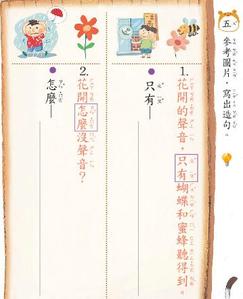 五、參考圖片，寫出造句。
1. 花開的聲音，只有蝴蝶和蜜蜂聽得到。
●只有
2. 花開怎麼沒聲音？
●怎麼